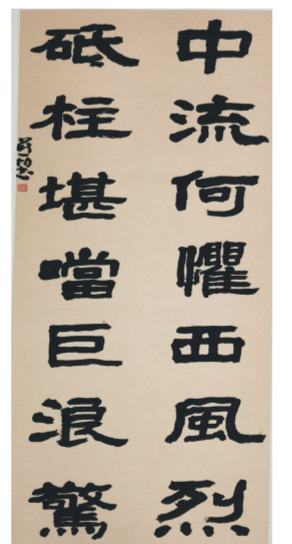 中流何懼西風烈
砥柱堪噹巨浪驚